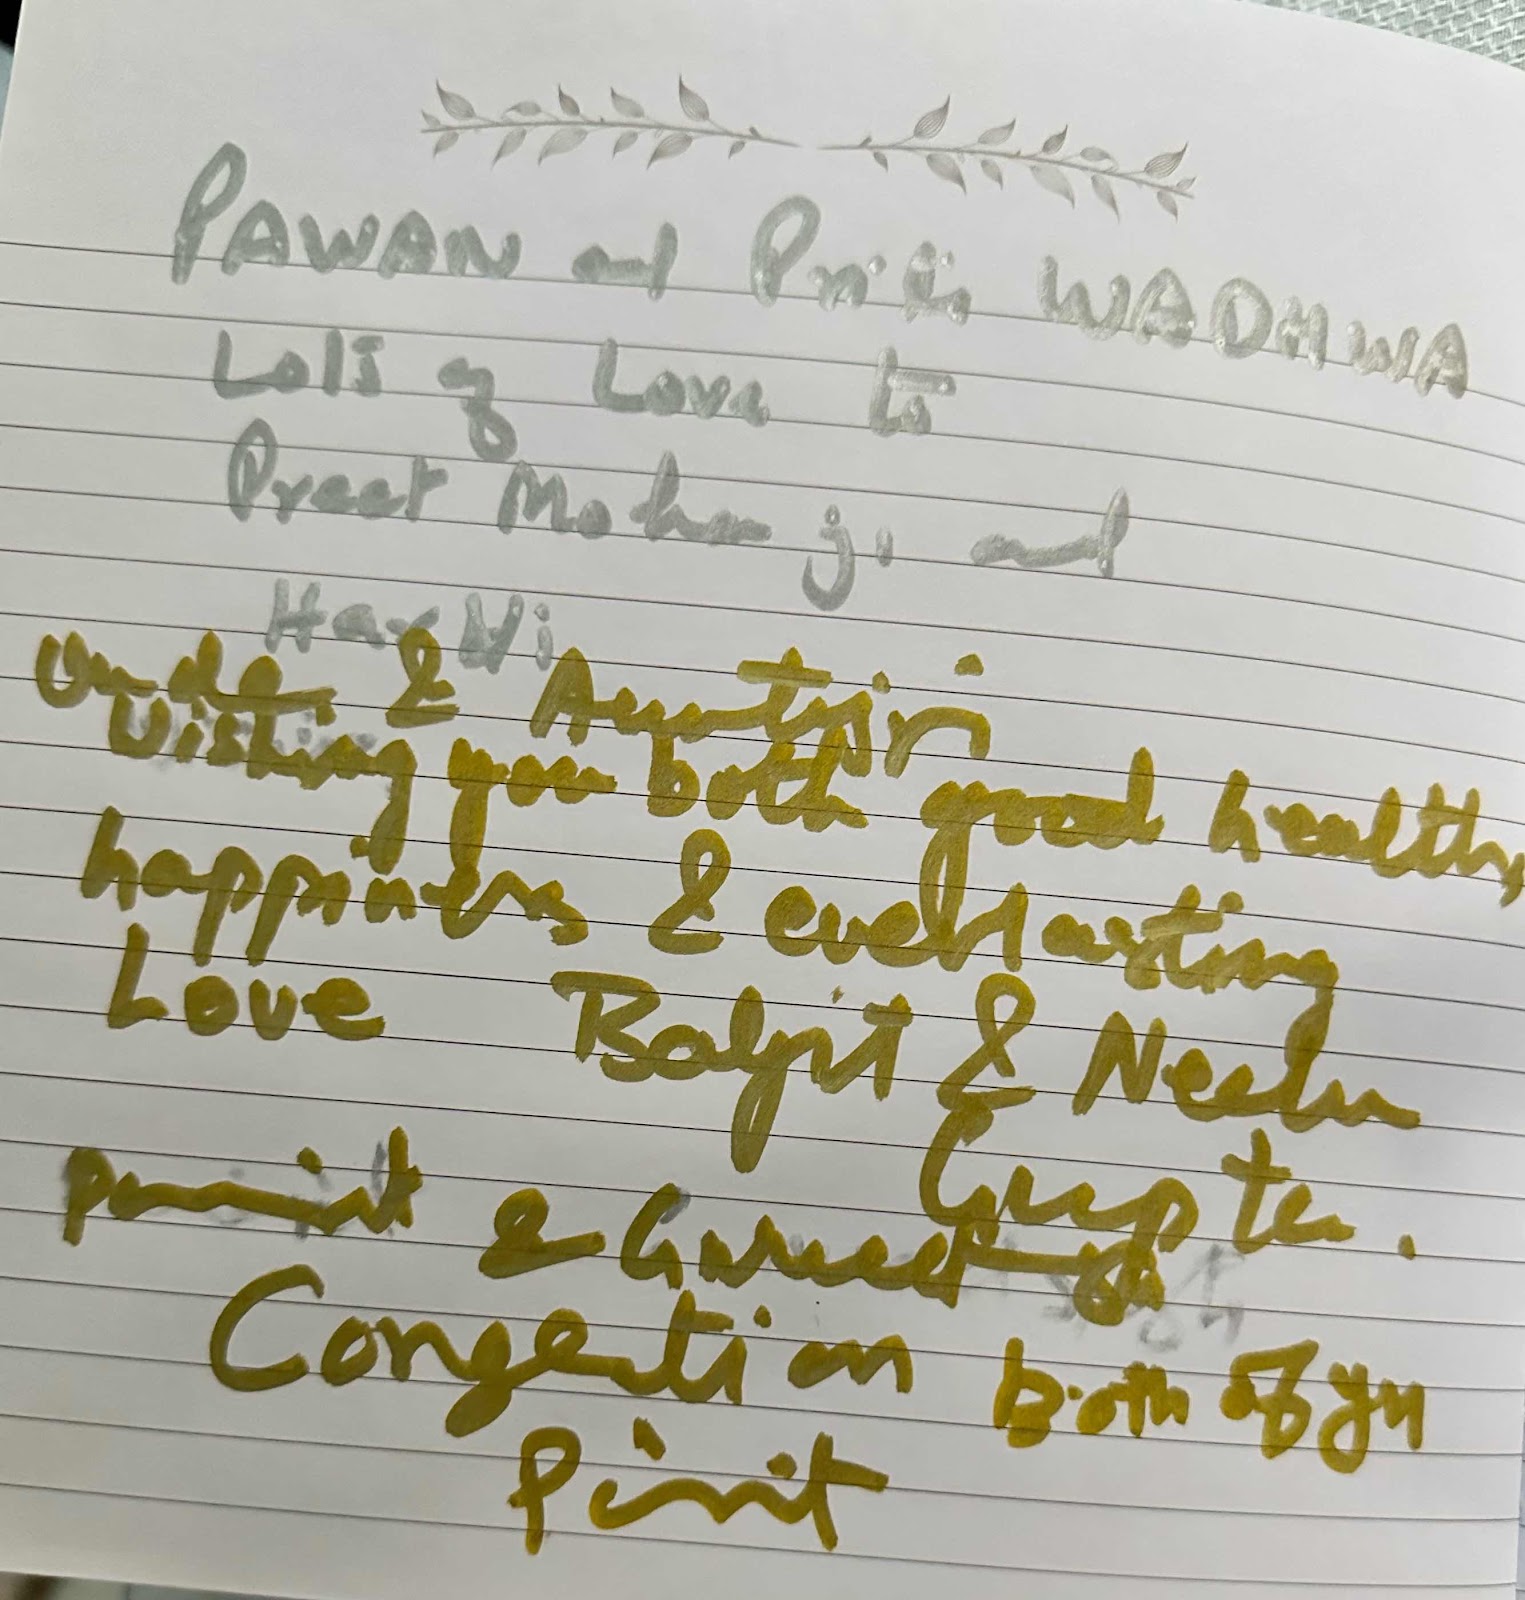 PAWAN and Priti WADHWA
Lots of Love to
Preet Mohan ji and
Harvi
Uncle & Auntiji
Wishing you both good health,
happiness & everlasting
Love Baljit & Neelu
Gupta.
&
Congertion both of yu
Pinit